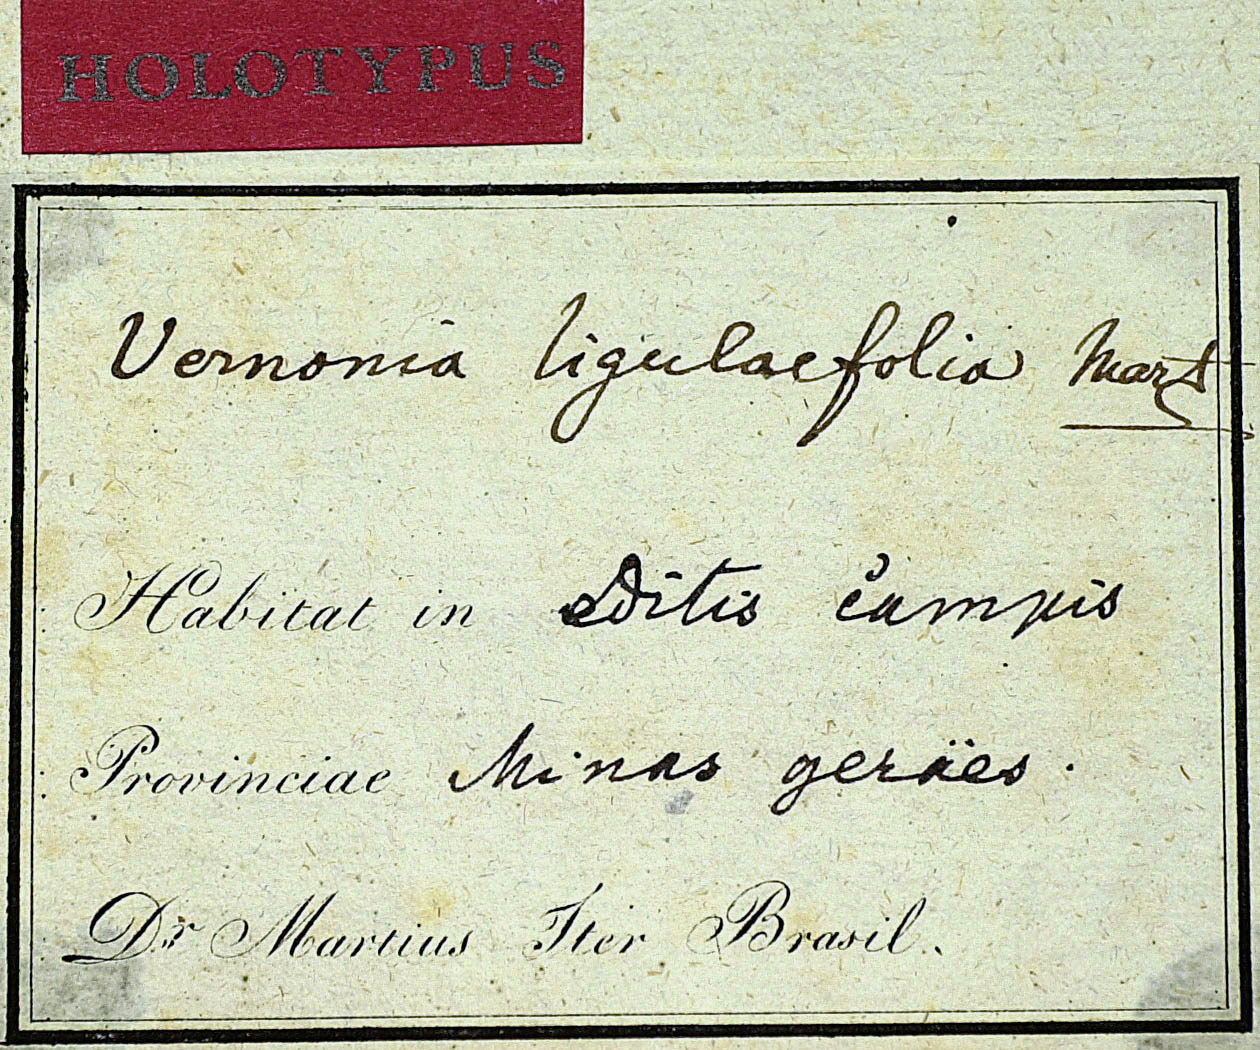 HOLOTYPUS
Vernonia ligulaefolia Mart
Habitat in editis campis
Provinciae Minas geräes.
Dr Martius Iter Brasil.